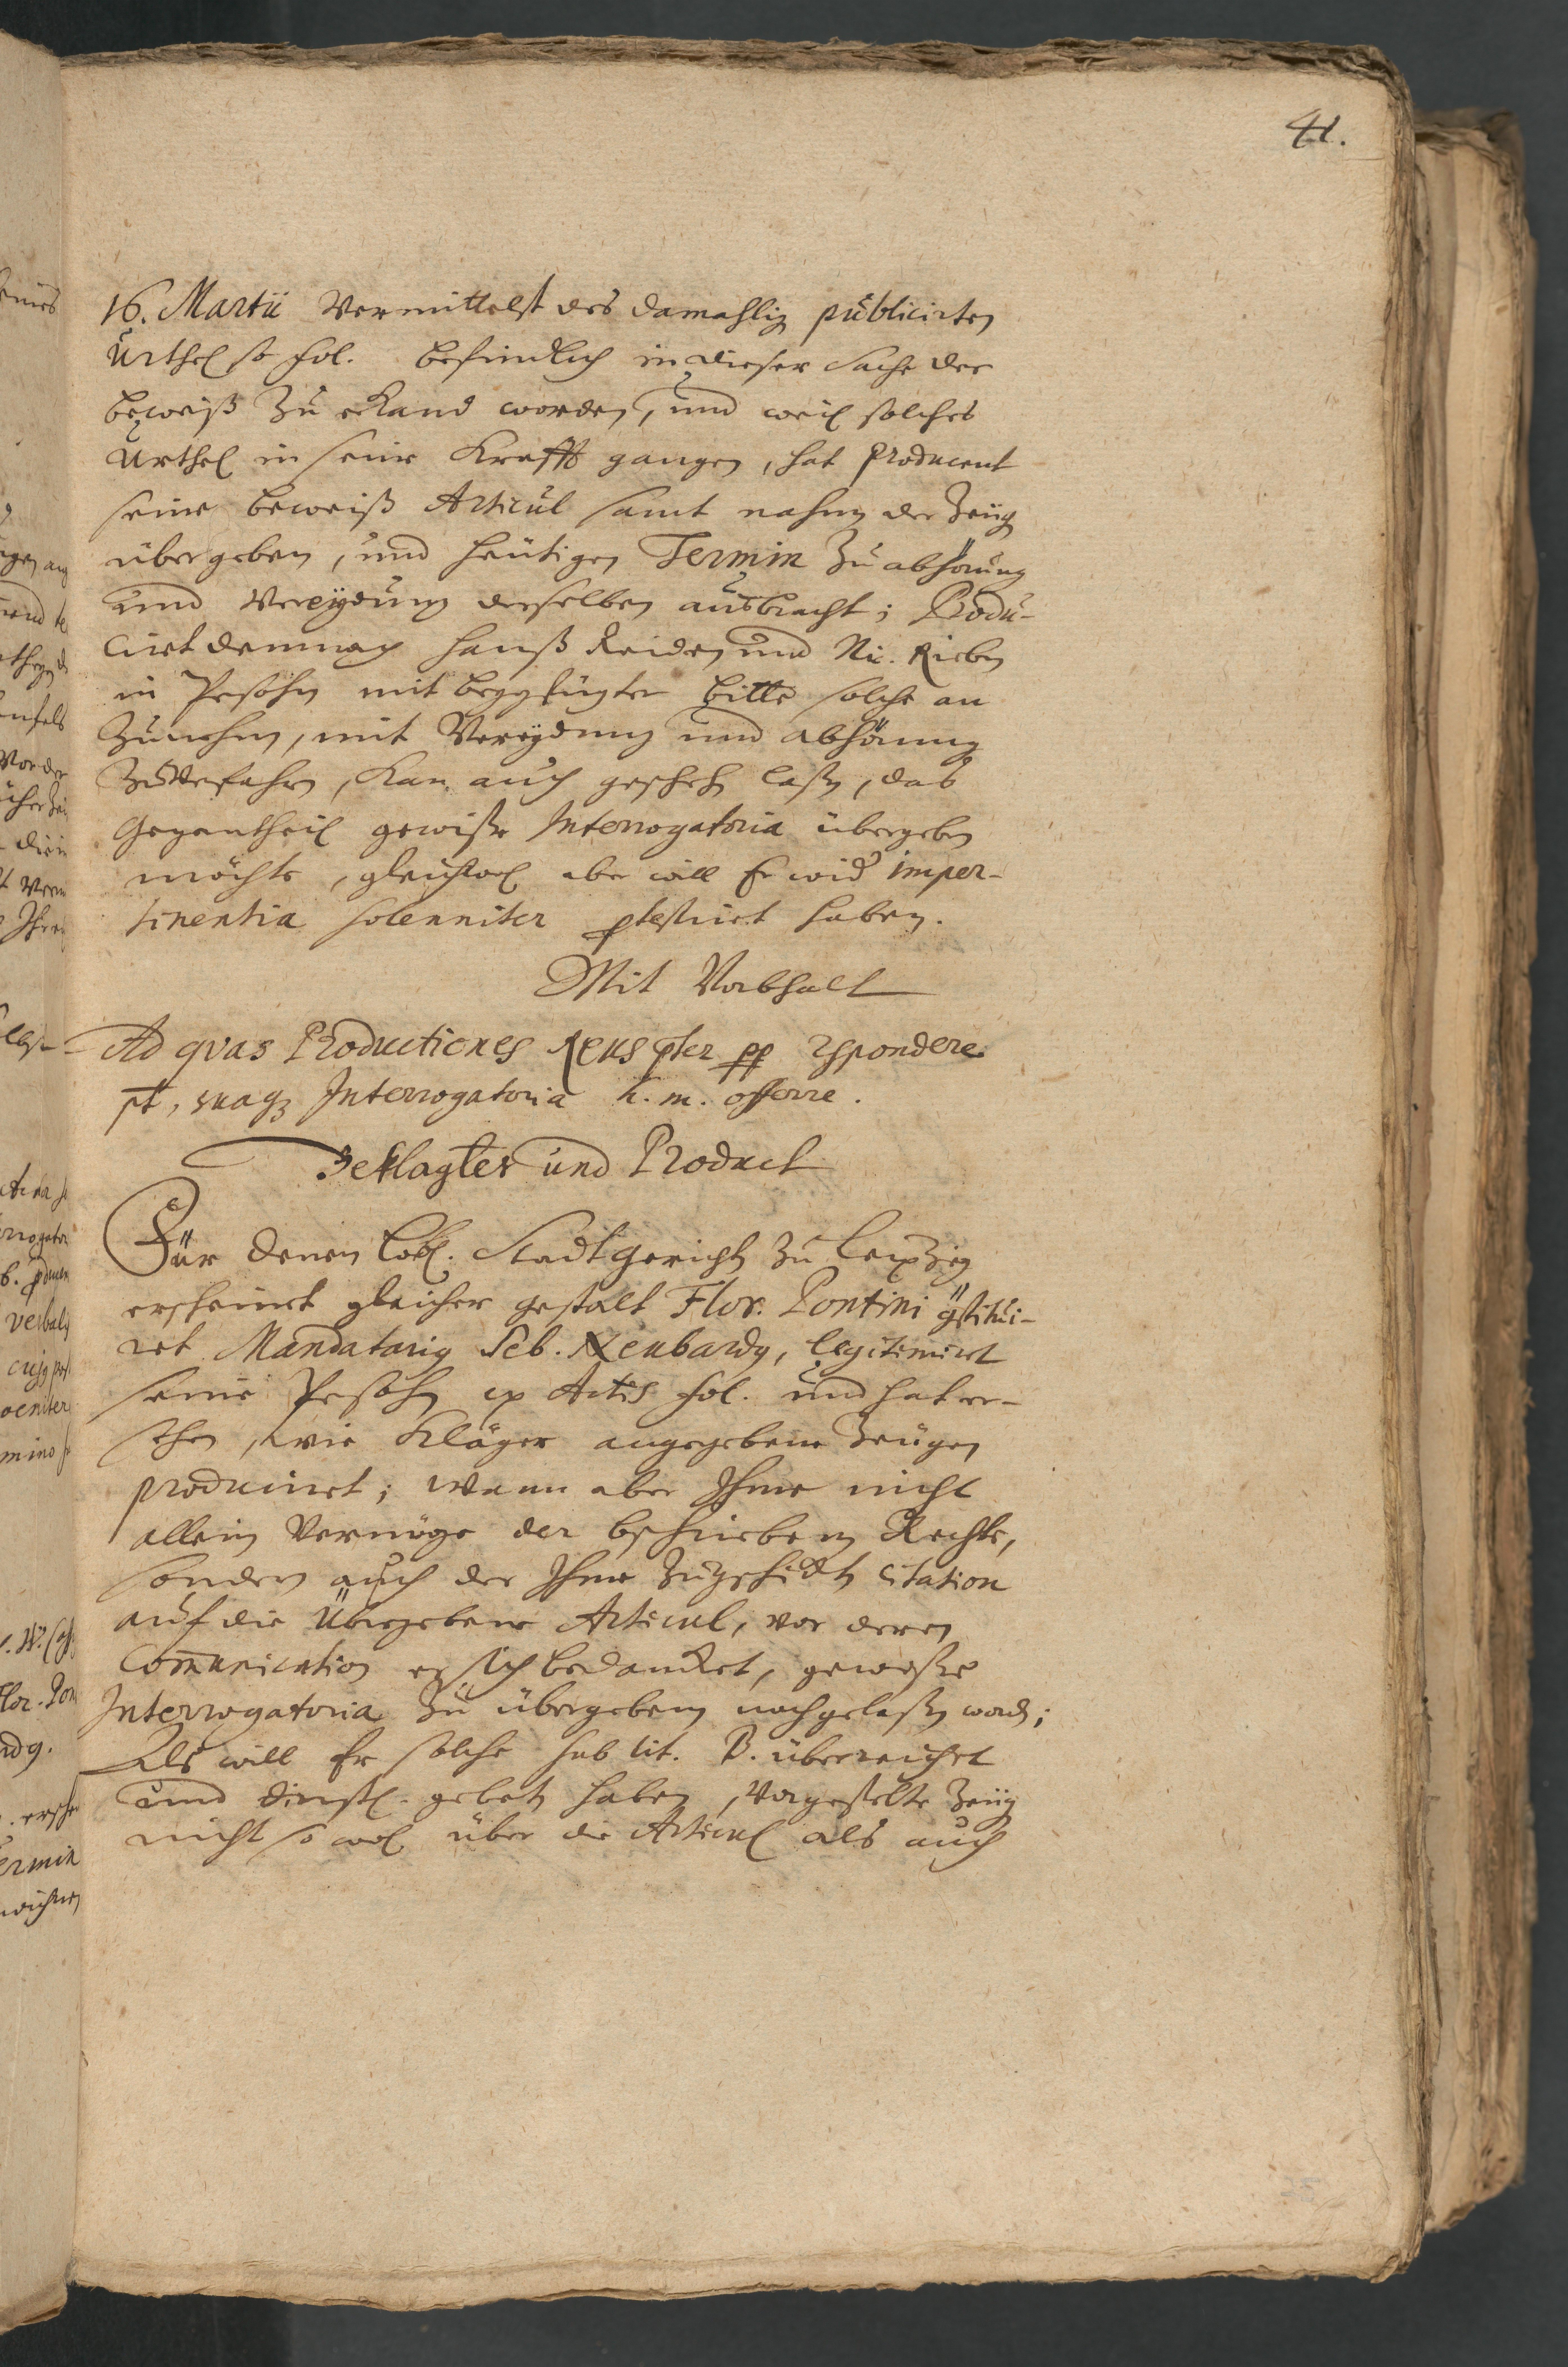 41.
16. Martii Vermittelst des damahlig publicirten
Urthel so fol. befindlich in dieser Sache der
beweiß Zu erkand worden, und weil solches
Urthel in seine Krafft gangen, hat Producent
seine beweiß Articul samt nahmen der Zeug
übergeben, und heutigen Termin Zu abhörung
und Vereydung derselben ausbracht; Produ-
cirt demnach Hanß Reiden und Nic. Rieben
in Persohn mit beygefügter bitte solche an
Zunehmen, mit Vereydung und abhörung
Zuverfahren, Kan auch gescheh laßen, das
Gegentheil gewiße Interrogatoria übergeben
möchte, gleichwol aber will Er wider imper-
tinentia solenniter protestiret haben.
Mit Vorbhalt
Ad qvas Productiones Reus pter pp respondere
pt, suaq Interrogatoria h. m. offerre.
Beklagter und Product
Für denen Löbl. Stadtgericht zu Leipzig
erscheinet gleicher gestalt Flor. Pontini constitui-
ret Mandatarius Seb. Neubardg, legitimiret
seine Persohn ex Actis fol. und hat er-
sehen, wie Kläger angegebene Zeugen
produciret; Wann aber Ihme nicht
allein Vermöge der bschriebenen Rechte,
sondern auch der Ihme Zugeschickten Citation
auf die Übergebene Articul, vor deren
Communication er sich bedancket, gewiße
Interrogatoria Zu übergeben nachgelaßen word;
Als will Er solche sub lit. B. überreichet
und dinstl. gebeten haben, Vorgestelte Zeug
nicht so wol über die Articul als auch